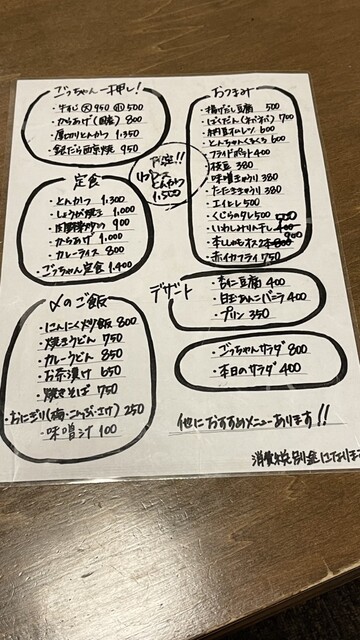 ごっちゃん一押し!
・牛もつ 大950 小500
・からあげ(国産) 800
・厚切りとんかつ 1.350
・銀だら西京焼 950
定食
・とんかつ 1.300
・しょうが焼き 1.000
・回鍋肉炒め 900
・からあげ 1.000
・カレーライス 800
・ごっちゃん定食 1.400
〆のご飯
・にんにく炒飯 800
・焼きうどん 750
・カレーうどん 850
・お茶漬け 650
・焼きそば 750
・おにぎり(梅・こんぶ・エゲ) 250
・味噌汁 100
とんかつ
1.500
おつまみ
・揚げだし豆腐 500
・ばくだん(ネバネバ) 700
・納豆オムレツ 600
・とんちゃんもくもく 600
・フライドポテト 400
・枝豆 380
・味噌きゅうり 380
・たたききゅうり 380
・エイヒレ 500
・くじらのタレ 500
・いわしみりん干し 400
・本ししゃもオス2本 900
・赤イカフライ 750
デザート
・杏仁豆腐 400
・白玉あんこバニラ 400
・プリン 350
・ごっちゃんサラダ 800
・本日のサラダ 400
他におすすめメニューあります!!
消費税別途になります